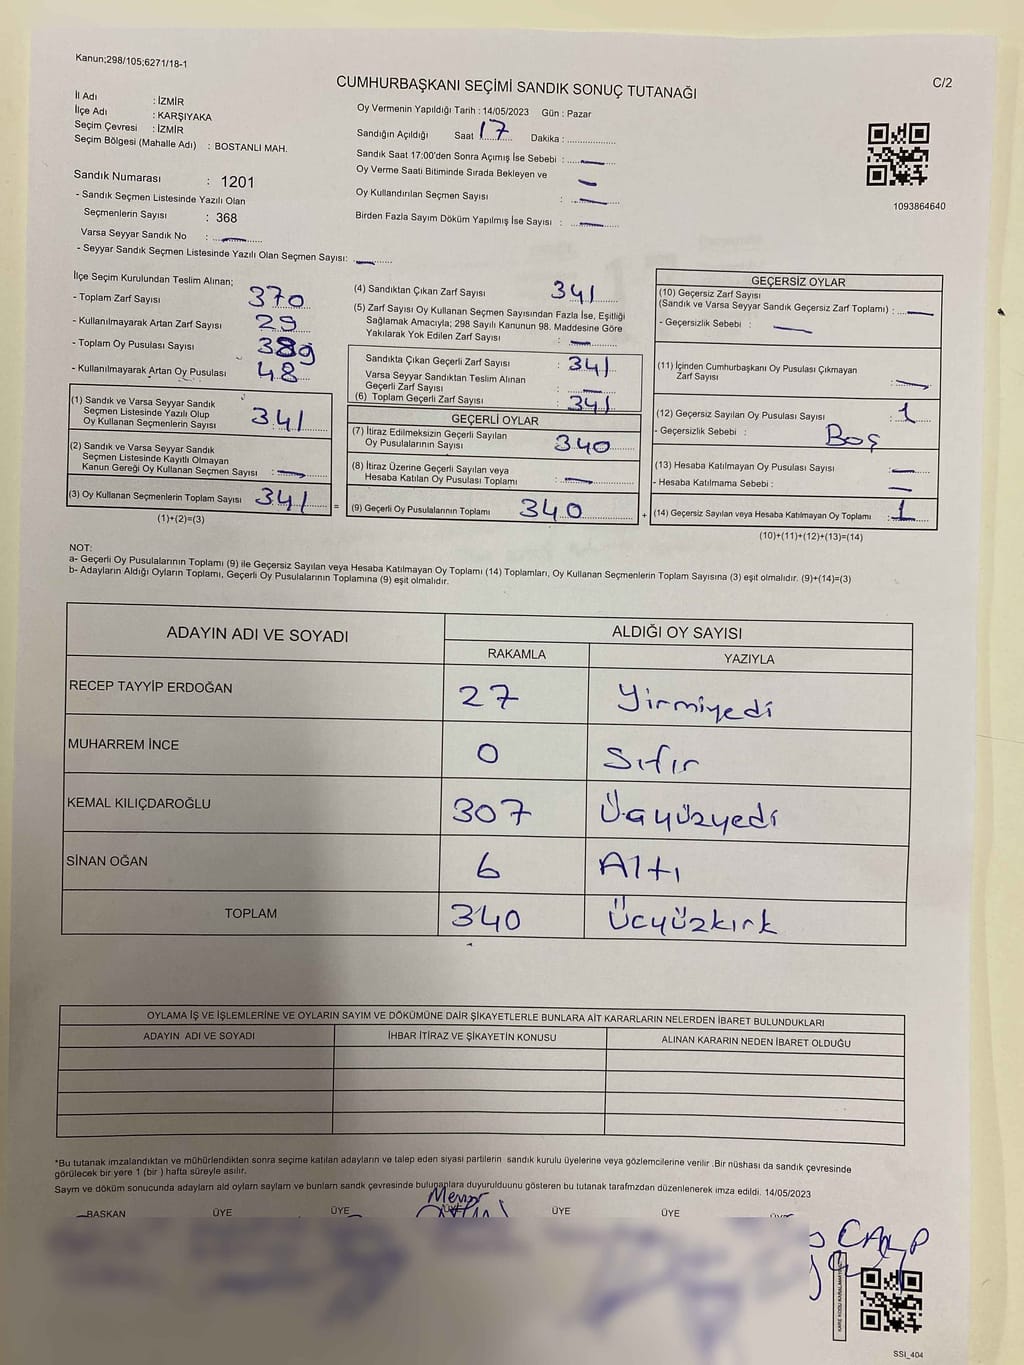 Kanun;298/105;6271/18-1
C/2
CUMHURBAŞKANI SEÇİMİ SANDIK SONUÇ TUTANAĞI
İl Adı : İZMİR
İlçe Adı : KARŞIYAKA
Seçim Çevresi : İZMİR
Seçim Bölgesi (Mahalle Adı) : BOSTANLI MAH.
Sandık Numarası : 1201
- Sandık Seçmen Listesinde Yazılı Olan
Seçmenlerin Sayısı : 368
Varsa Seyyar Sandık No : —
- Seyyar Sandık Seçmen Listesinde Yazılı Olan Seçmen Sayısı: —
Oy Vermenin Yapıldığı Tarih : 14/05/2023 Gün : Pazar
Sandığın Açıldığı Saat 17 Dakika : ................
Sandık Saat 17:00'den Sonra Açımış İse Sebebi : —
Oy Verme Saati Bitiminde Sırada Bekleyen ve —
Oy Kullandırılan Seçmen Sayısı : —
Birden Fazla Sayım Döküm Yapılmış İse Sayısı : —
1093864640
İlçe Seçim Kurulundan Teslim Alınan;
- Toplam Zarf Sayısı 370
- Kullanılmayarak Artan Zarf Sayısı 29
- Toplam Oy Pusulası Sayısı 389
- Kullanılmayarak Artan Oy Pusulası 48
(1) Sandık ve Varsa Seyyar Sandık
Seçmen Listesinde Yazılı Olup
Oy Kullanan Seçmenlerin Sayısı 341
(2) Sandık ve Varsa Seyyar Sandık
Seçmen Listesinde Kayıtlı Olmayan
Kanun Gereği Oy Kullanan Seçmen Sayısı : —
(3) Oy Kullanan Seçmenlerin Toplam Sayısı 341
(1)+(2)=(3)
(4) Sandıktan Çıkan Zarf Sayısı 341
(5) Zarf Sayısı Oy Kullanan Seçmen Sayısından Fazla İse, Eşitliği
Sağlamak Amacıyla; 298 Sayılı Kanunun 98. Maddesine Göre
Yakılarak Yok Edilen Zarf Sayısı : —
Sandıkta Çıkan Geçerli Zarf Sayısı : 341
Varsa Seyyar Sandıktan Teslim Alınan
Geçerli Zarf Sayısı : —
(6) Toplam Geçerli Zarf Sayısı : 341
GEÇERLİ OYLAR
(7) İtiraz Edilmeksizin Geçerli Sayılan
Oy Pusulalarının Sayısı 340
(8) İtiraz Üzerine Geçerli Sayılan veya
Hesaba Katılan Oy Pusulası Toplamı : —
= (9) Geçerli Oy Pusulalarının Toplamı 340 +
GEÇERSİZ OYLAR
(10) Geçersiz Zarf Sayısı
(Sandık ve Varsa Seyyar Sandık Geçersiz Zarf Toplamı) : —
- Geçersizlik Sebebi : —
(11) İçinden Cumhurbaşkanı Oy Pusulası Çıkmayan
Zarf Sayısı : —
(12) Geçersiz Sayılan Oy Pusulası Sayısı : 1
- Geçersizlik Sebebi : Boş
(13) Hesaba Katılmayan Oy Pusulası Sayısı : —
- Hesaba Katılmama Sebebi : —
(14) Geçersiz Sayılan veya Hesaba Katılmayan Oy Toplamı : 1
(10)+(11)+(12)+(13)=(14)
NOT:
a- Geçerli Oy Pusulalarının Toplamı (9) ile Geçersiz Sayılan veya Hesaba Katılmayan Oy Toplamı (14) Toplamları, Oy Kullanan Seçmenlerin Toplam Sayısına (3) eşit olmalıdır. (9)+(14)=(3)
b- Adayların Aldığı Oyların Toplamı, Geçerli Oy Pusulalarının Toplamına (9) eşit olmalıdır.
ADAYIN ADI VE SOYADI
ALDIĞI OY SAYISI
RAKAMLA YAZIYLA
RECEP TAYYİP ERDOĞAN 27 Yirmiyedi
MUHARREM İNCE 0 Sıfır
KEMAL KILIÇDAROĞLU 307 Üçyüzyedi
SİNAN OĞAN 6 Altı
TOPLAM 340 Üçyüzkırk
OYLAMA İŞ VE İŞLEMLERİNE VE OYLARIN SAYIM VE DÖKÜMÜNE DAİR ŞİKAYETLERLE BUNLARA AİT KARARLARIN NELERDEN İBARET BULUNDUKLARI
ADAYIN ADI VE SOYADI İHBAR İTİRAZ VE ŞİKAYETİN KONUSU ALINAN KARARIN NEDEN İBARET OLDUĞU
*Bu tutanak imzalandıktan ve mühürlendikten sonra seçime katılan adayların ve talep eden siyasi partilerin sandık kurulu üyelerine veya gözlemcilerine verilir .Bir nüshası da sandık çevresinde
görülecek bir yere 1 (bir ) hafta süreyle asılır.
Sayım ve döküm sonucunda adayların ald oyların sayları ve bunların sandk çevresinde bulunanlara duyurulduunu gösteren bu tutanak tarafmzdan düzenlenerek imza edildi. 14/05/2023
BAŞKAN ÜYE ÜYE ÜYE ÜYE ÜYE
SSI_404